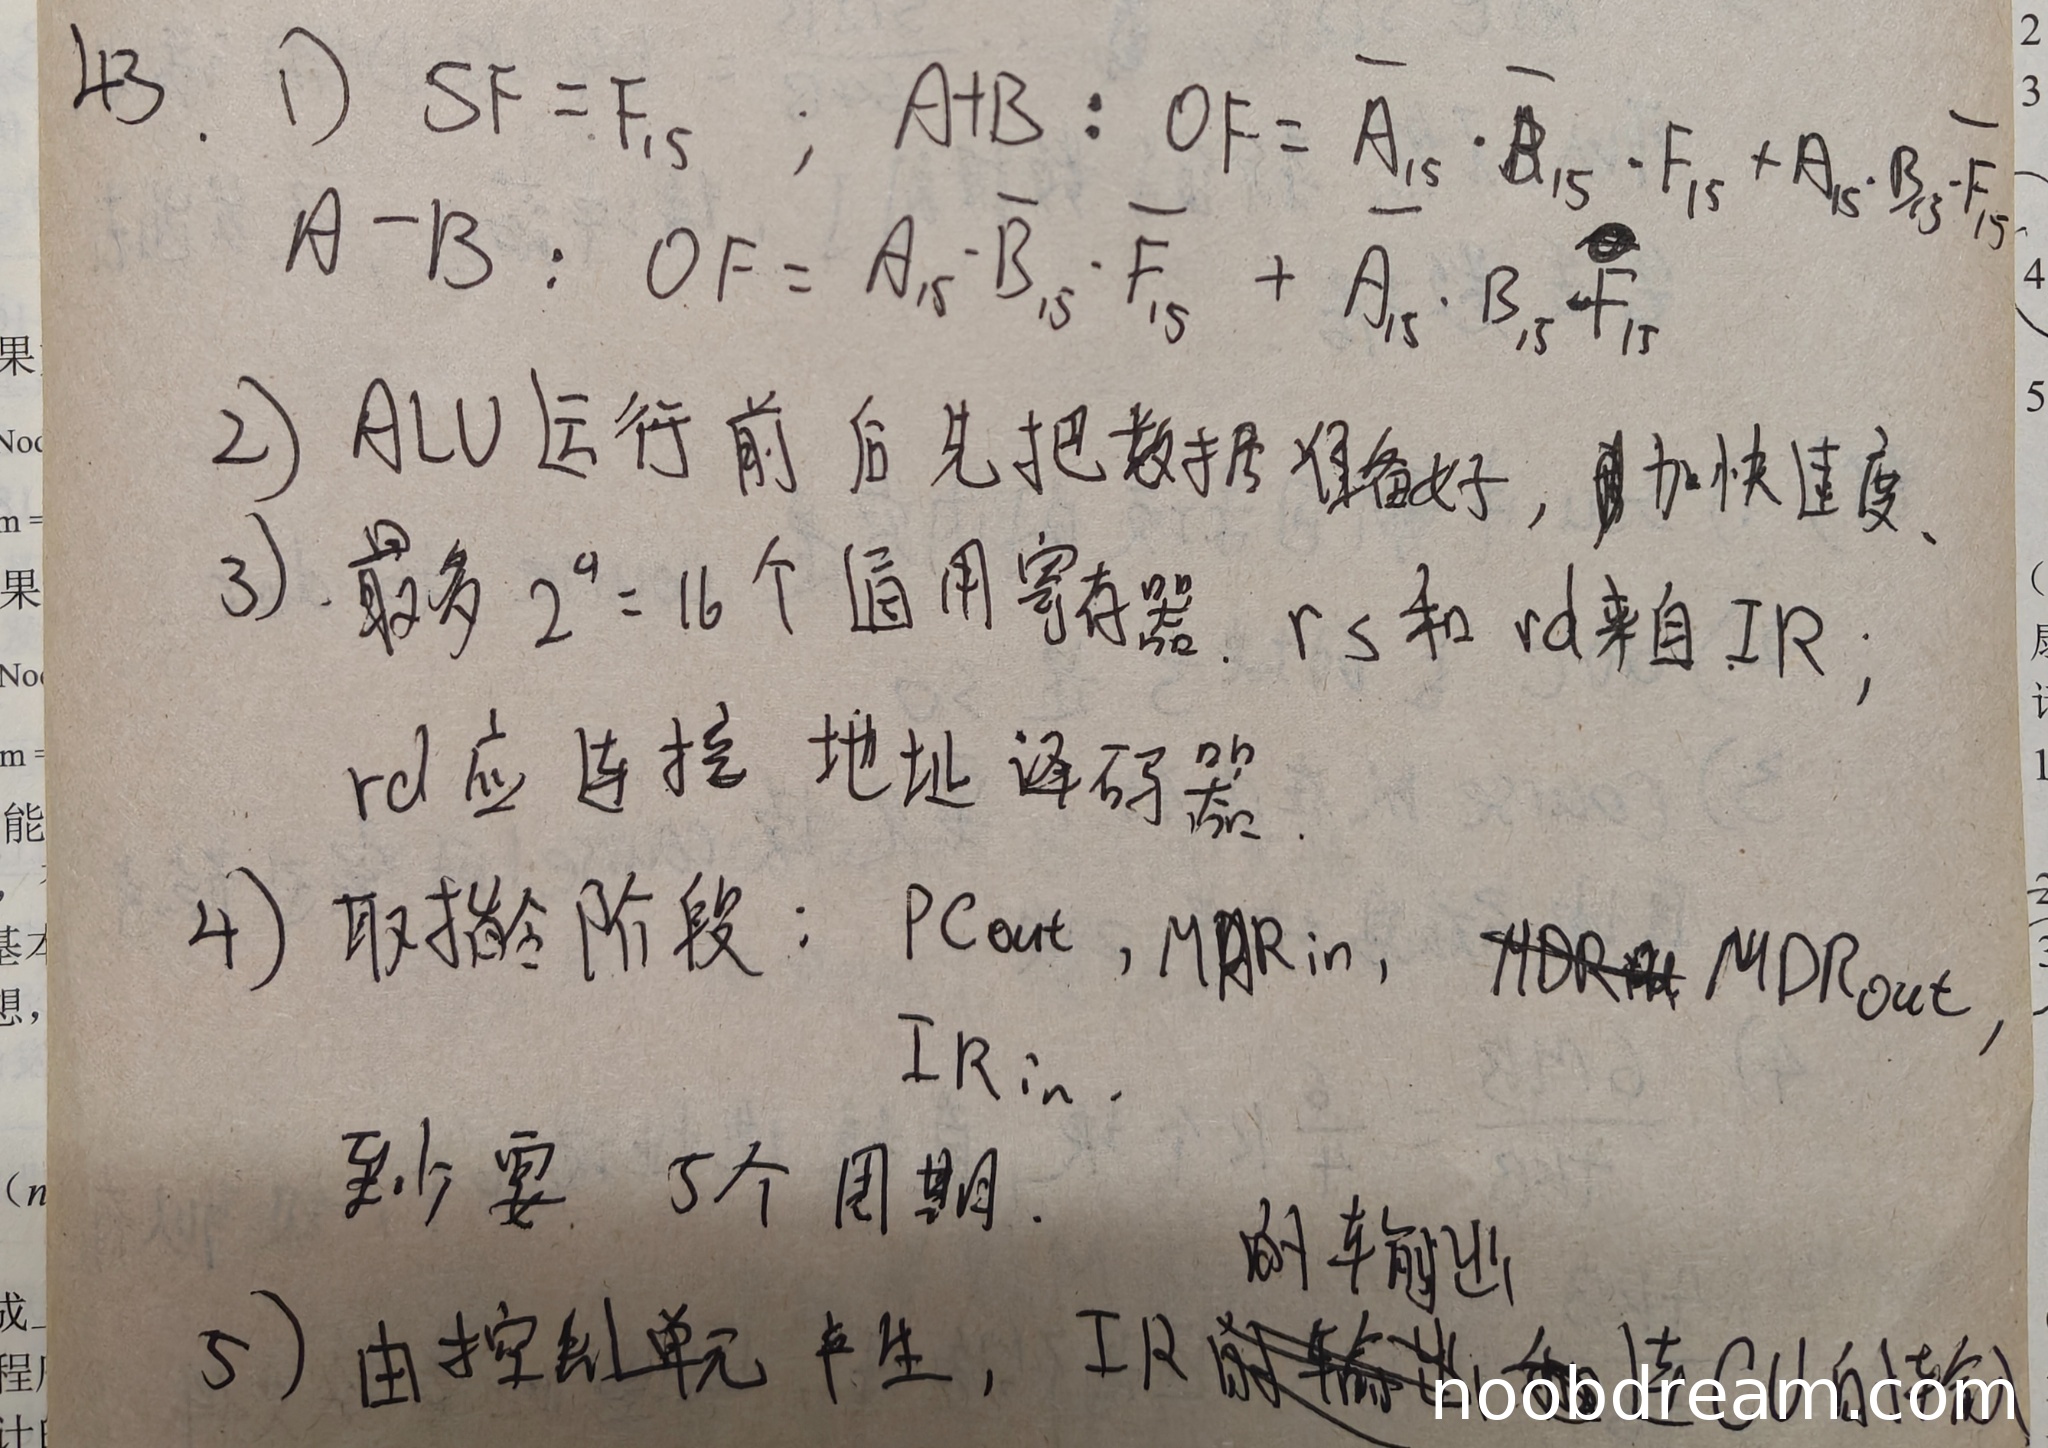 43. 1) SF = F₁₅ ; A+B : OF = A̅₁₅ · B̅₁₅ · F₁₅ + A₁₅ · B₁₅ · F̅₁₅
A-B : OF = A₁₅ · B̅₁₅ · F̅₁₅ + A̅₁₅ · B₁₅ · F₁₅
2) ALU运行前后先把数据准备好, 加快速度、
3). 最多 2⁴ = 16 个 通用寄存器. rs和 rd来自IR;
rd应连接 地址译码器.
4) 取指令阶段: PCout, MARin, MDRout,
IRin.
至少要 5个周期.
的输出
5) 由控制单元产生, IR 连CU的输入
果
Noo
m =
果
Noo
m =
能
基本
想,
(n
成
程序
2
3
4
5
(
1
2
3
noobdream.com